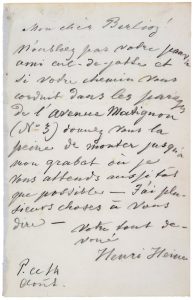 Mon cher Berlioz
N'oubliez pas votre pauvre
ami cul-de-jatte et
si votre chemin vous
conduit dans les parages
de l'avenue Matignon
(No 3) donnez vous la
peine de monter jusqu'à
mon grabat où je
vous attends aussitôt
que possible — J'ai plu-
sieurs choses à vous
dire —
Votre tout de-
voué
Henri Heine
Août.